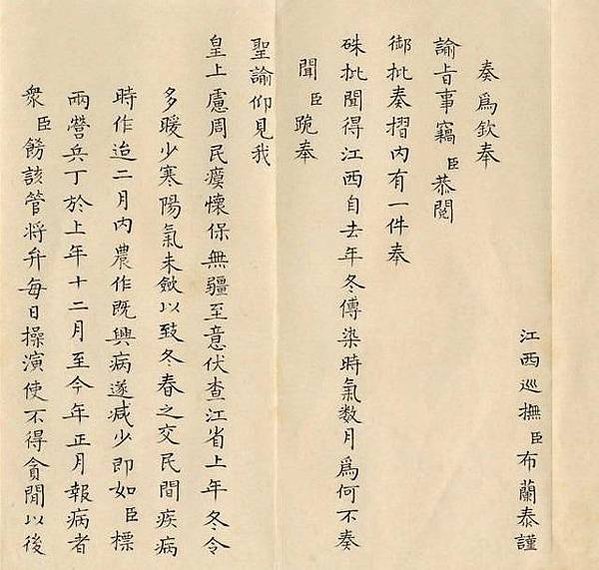 江西巡撫臣布蘭泰謹
奏爲欽奉
諭旨事竊臣恭閱
御批奏摺內有一件奉
硃批聞得江西自去年冬傳染時氣数月爲何不奏
聞臣跪奉
聖諭仰見我
皇上慮周民瘼懷保無疆至意伏查江省上年冬令
多暖少寒陽氣未斂以致冬春之交民間疾病
時作迨二月內農作既興病遂减少即如臣標
兩營兵丁於上年十二月至今年正月報病者
衆臣飭該管將弁每日操演使不得貪閒以後